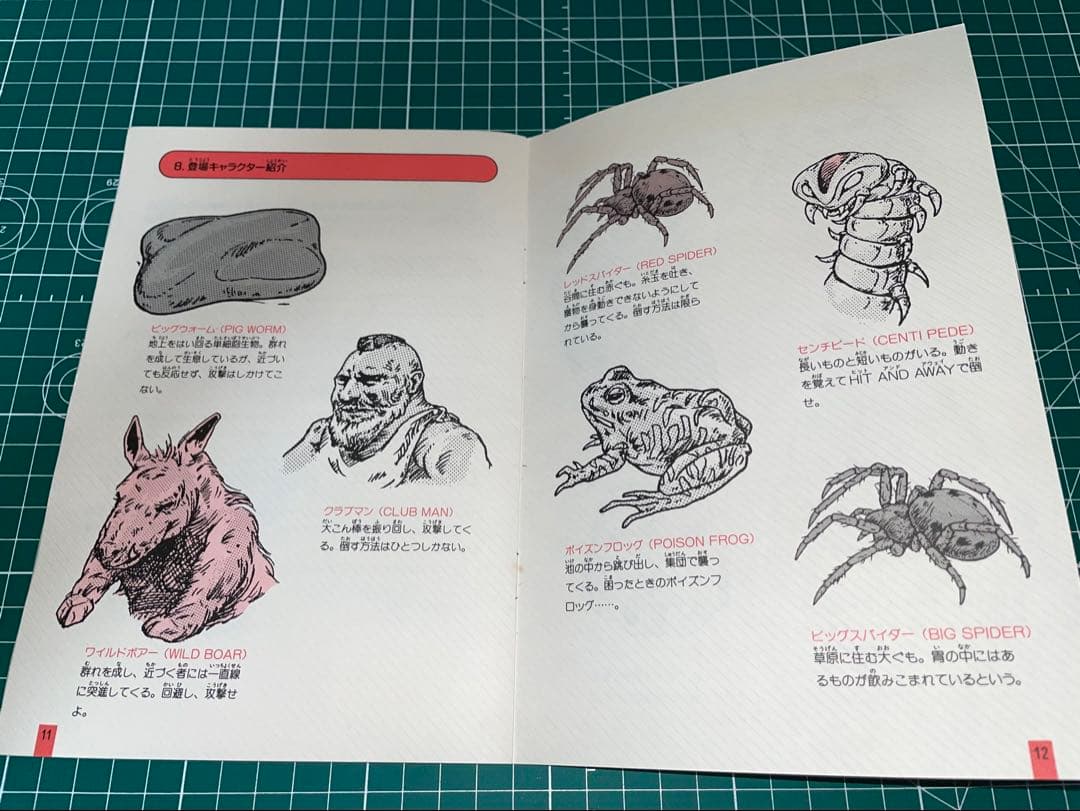 8. 登場キャラクター紹介
ビッグウォーム (PIG WORM)
地上をはい回る単細胞生物。群れ
を成して生息しているが、近づい
ても反応せず、攻撃はしかけてこ
ない。
クラブマン (CLUB MAN)
大こん棒を振り回し、攻撃してく
る。倒す方法はひとつしかない。
ワイルドボアー (WILD BOAR)
群れを成し、近づく者には一直線
に突進してくる。回避し、攻撃せ
よ。
11
レッドスパイダー (RED SPIDER)
谷間に住む赤ぐも。糸玉を吐き、
獲物を身動きできないようにして
から襲ってくる。倒す方法は限ら
れている。
センチピード (CENTI PEDE)
長いものと短いものがいる。動き
を覚えてHIT AND AWAYで倒
せ。
ポイズンフロッグ (POISON FROG)
池の中から跳び出し、集団で襲っ
てくる。困ったときのポイズンフ
ロッグ……。
ビッグスパイダー (BIG SPIDER)
草原に住む大ぐも。胃の中にはあ
るものが飲みこまれているという。
12